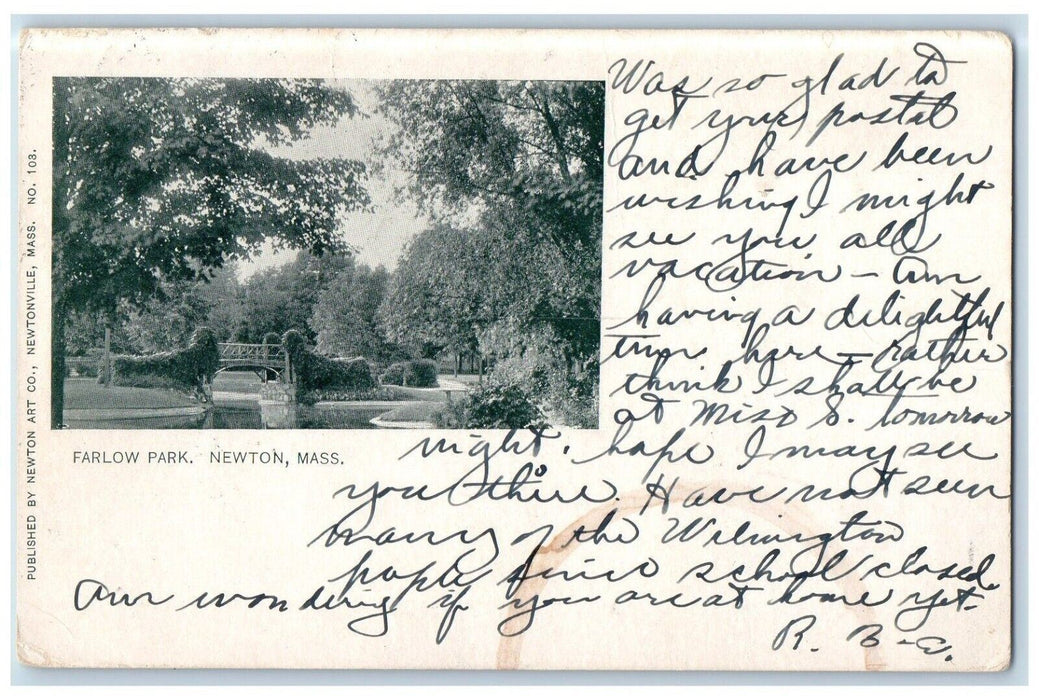 PUBLISHED BY NEWTON ART CO., NEWTONVILLE, MASS. NO. 108.
FARLOW PARK. NEWTON, MASS.
Was so glad to
get your postal
and have been
wishing I might
see you all
vacation – Am
having a delightful
time here – rather
think I shall be
at Miss S. tomorrow
night. hope I may see
you there. Have not seen
many of the Wilmington
people since school closed.
Am wondering if you are at home yet.
R. B. E.